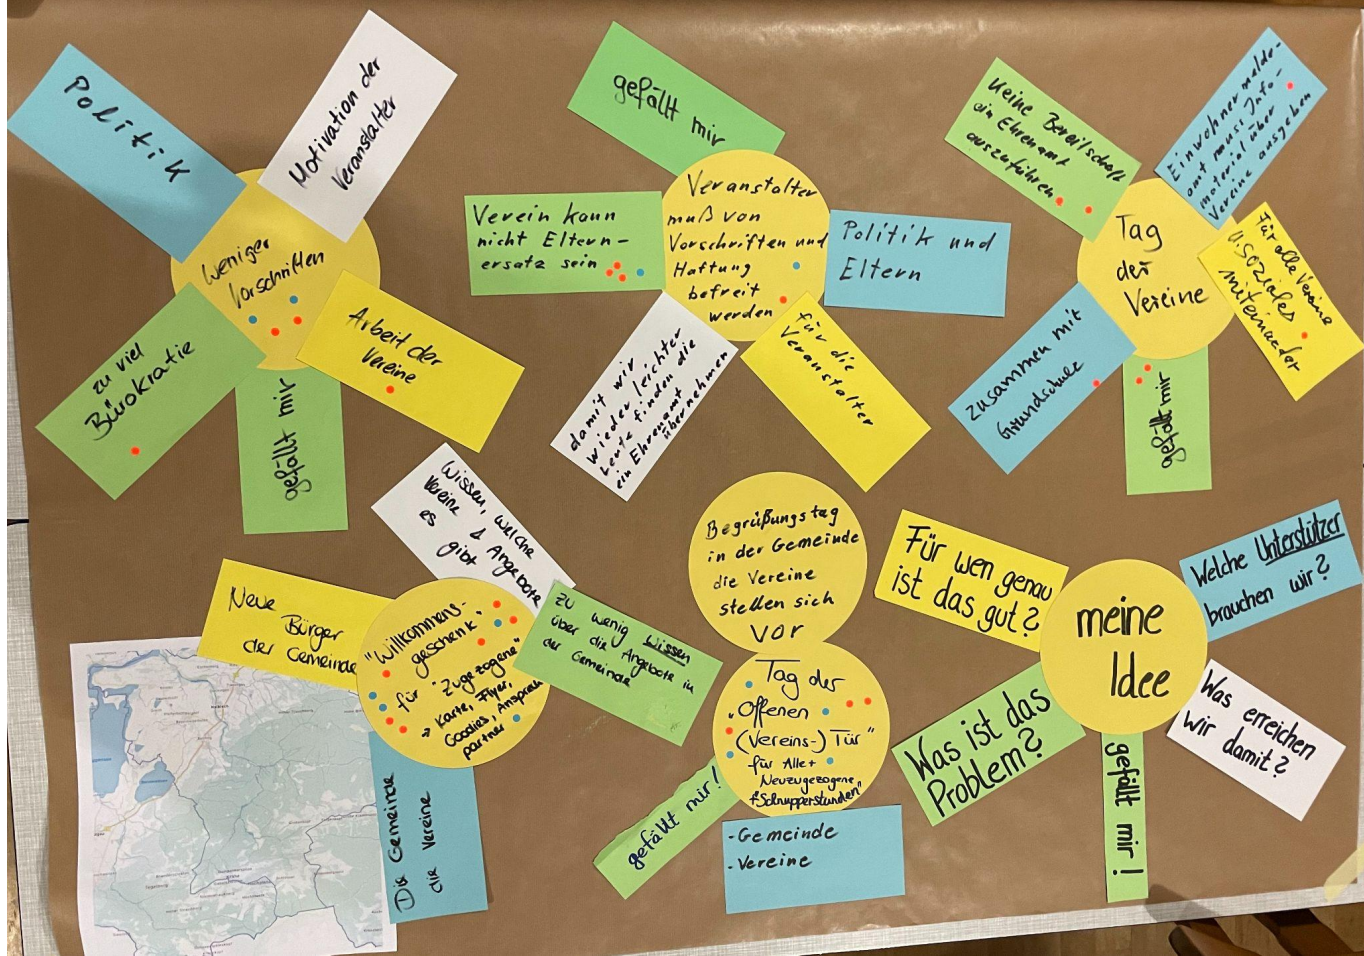 Politik
Motivation der
Veranstalter
weniger
Vorschriften
Arbeit der
Vereine
zu viel
Bürokratie
gefällt mir
gefällt mir
Verein kann
nicht Eltern-
ersatz sein
Veranstalter
muß von
Vorschriften und
Haftung
befreit
werden
Politik und
Eltern
damit wir
wieder leichter
Leute finden die
ein Ehrenamt
übernehmen
für die
Veranstalter
keine Bereitschaft
ein Ehrenamt
auszuführen
Einwohnermelde-
amt muss Info-
material über
Vereine ausgeben
Tag
der
Vereine
Für alle Vereine
u. soziales
miteinander
zusammen mit
Grundschule
gefällt mir
Wissen, welche
Vereine & Angebote
es gibt
Neue
Bürger
der Gemeinde
"Willkommens-
geschenk"
für "Zugezogene"
→ Karte, Flyer,
Goodies, Ansprech
partner
zu wenig Wissen
über die Angebote in
der Gemeinde
Die Gemeinde
die Vereine
Begrüßungstag
in der Gemeinde
die Vereine
stellen sich
vor
Tag der
"Offenen
(Vereins-) Tür"
für Alle +
Neuzugezogene
"Schnupperstunden"
gefällt mir!
- Gemeinde
- Vereine
Für wen genau
ist das gut?
meine
Idee
Welche Unterstützer
brauchen wir?
Was ist das
Problem?
gefällt mir!
Was erreichen
wir damit?